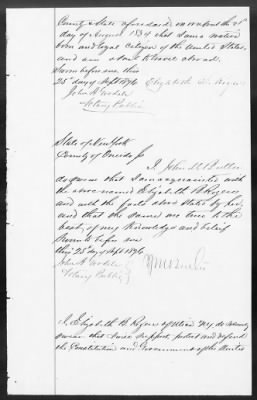 County & State aforesaid, on or about the 28
day of August 1834 that I am a native
born and loyal citizen of the United States,
and am about to travel abroad.
Sworn before me this
25 day of Sept 1896 Elizabeth B. Rogers
John A.
Notary Public
State of New York
County of Oneida ss
I, John M. Butler
do swear that I am acquainted with
the above named Elizabeth B Rogers
and with the facts above stated by her,
and that the same are true to the
best of my knowledge and belief
Sworn to before me
this 25 day of Sept 1896
John A.
Notary Public
I, Elizabeth B Rogers of Utica N.Y. do solemnly
swear that I will support, protect and defend
the Constitution and Government of the United